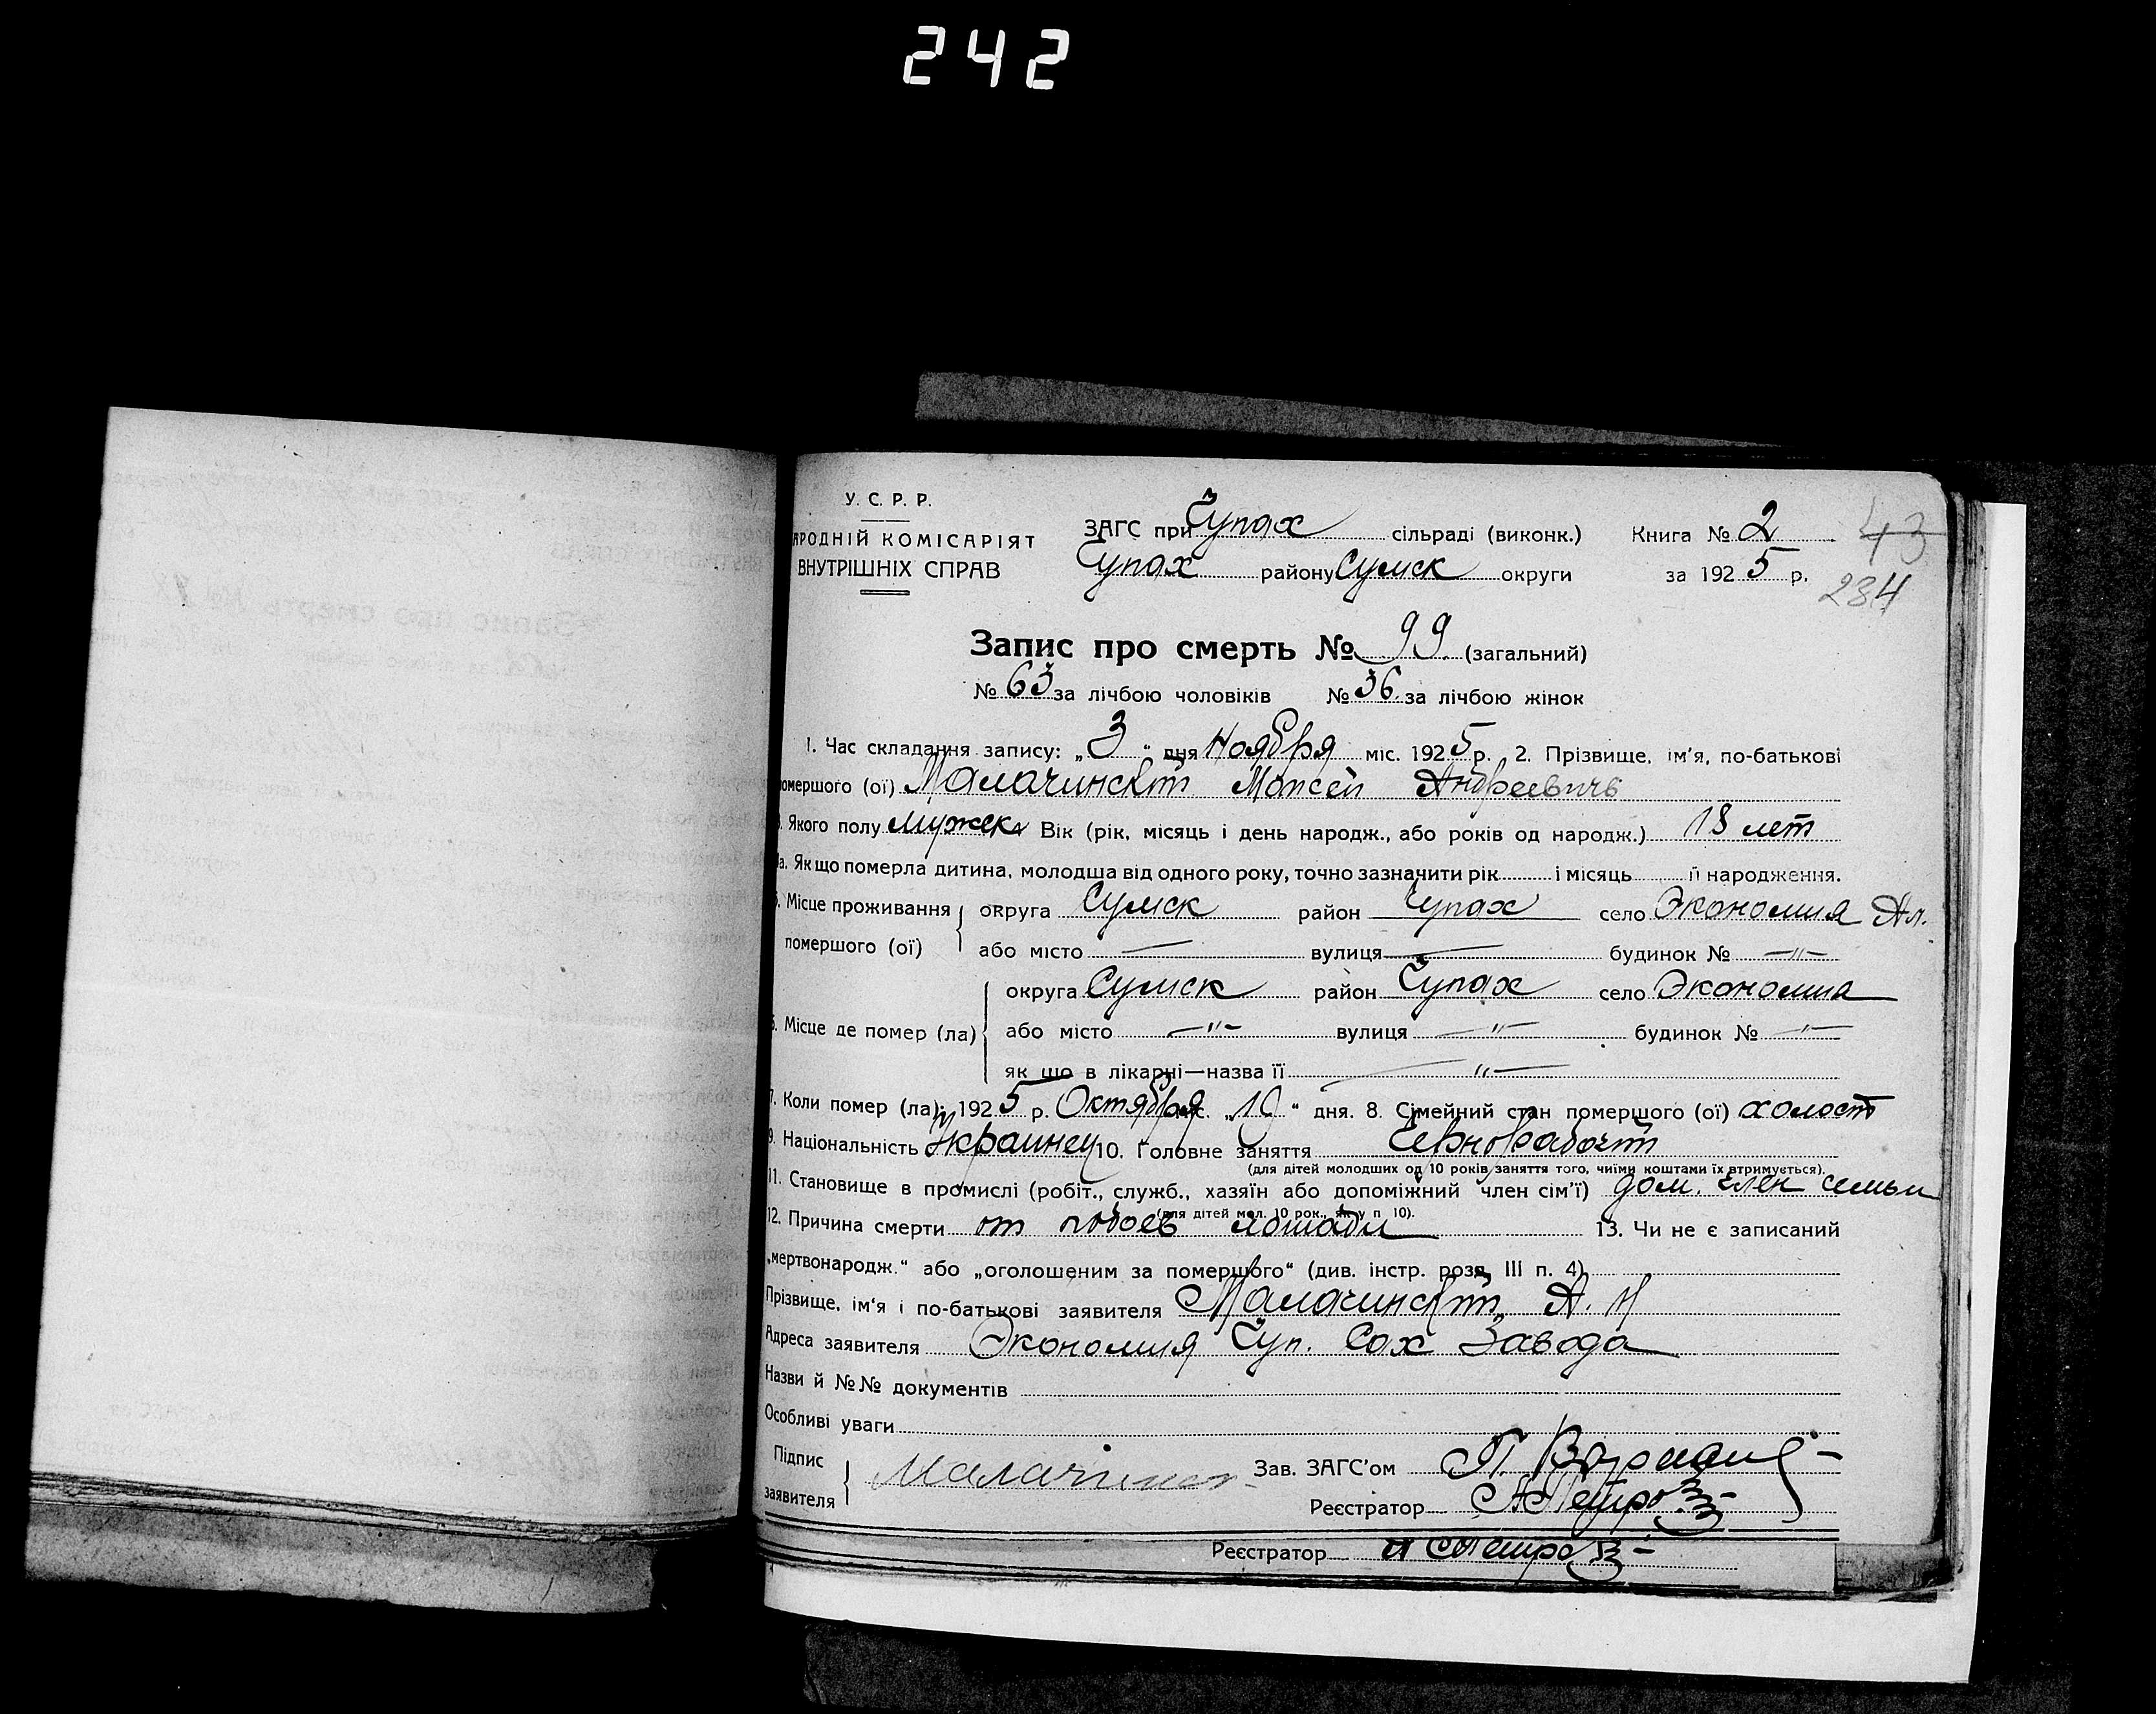 242
У. С. Р. Р.
АРОДНІЙ КОМІСАРІЯТ
ВНУТРІШНІХ СПРАВ
ЗАГС при Чупах сільраді (виконк.) Книга № 2 43
Чупах району Сумск округи за 1925 р. 234
Запис про смерть № 99 (загальний)
№ 63 за лічбою чоловіків № 36 за лічбою жінок
1. Час складання запису: „3“ дня Ноября міс. 1925 р. 2. Прізвище, ім'я, по-батькові
омершого (ої) Малачинский Моисей Андреевичъ
Якого полу мужск Вік (рік, місяць і день народж., або років од народж.) 18 лет
а. Якщо померла дитина, молодша від одного року, точно зазначити рік і місяць її народження.
Місце проживання помершого (ої) округа Сумск район Чупах село Экономия Ал.
або місто — вулиця — будинок № —„—
6. Місце де помер (ла) округа Сумск район Чупах село Экономиа
або місто —„— вулиця —„— будинок № —„—
як що в лікарні—назва її —„—
7. Коли помер (ла): 1925 р. Октября міс. „19“ дня. 8. Сімейний стан помершого (ої) холост
9. Національність Украинец 10. Головне заняття Чернорабочий
(для дітей молодших од 10 років заняття того, чиїми коштами їх втримується).
11. Становище в промислі (робіт., служб., хазяїн або допоміжний член сім'ї) дом. член семьи
(для дітей мол. 10 рок., як у п 10).
12. Причина смерти от побоев лошади 13. Чи не є записаний
„мертвонародж.“ або „оголошеним за помершого“ (див. інстр. розд. III п. 4)
Прізвище, ім'я і по-батькові заявителя Малачинский А. И
Адреса заявителя Экономия Чуп. Сах Завода
Назви й №№ документів
Особливі уваги
Підпис заявителя Малачинск Зав. ЗАГС'ом П.
Реєстратор А Петров
Реєстратор А Петров